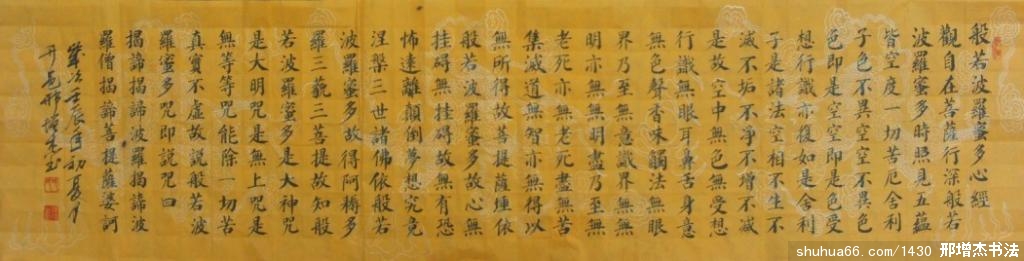 般若波羅蜜多心經
觀自在菩薩行深般若
波羅蜜多時照見五蘊
皆空度一切苦厄舍利
子色不異空空不異色
色即是空空即是色受
想行識亦復如是舍利
子是諸法空相不生不
滅不垢不淨不增不減
是故空中無色無受想
行識無眼耳鼻舌身意
無色聲香味觸法無眼
界乃至無意識界無無
明亦無無明盡乃至無
老死亦無老死盡無苦
集滅道無智亦無得以
無所得故菩提薩埵依
般若波羅蜜多故心無
挂碍無挂碍故無有恐
怖遠離顛倒夢想究竟
涅槃三世諸佛依般若
波羅蜜多故得阿耨多
羅三藐三菩提故知般
若波羅蜜多是大神咒
是大明咒是無上咒是
無等等咒能除一切苦
真實不虛故說般若波
羅蜜多咒即說咒曰
揭諦揭諦波羅揭諦波
羅僧揭諦菩提薩婆訶
歲次壬辰年初夏月
邢增杰
shuhua66.com/1430 邢增杰书法